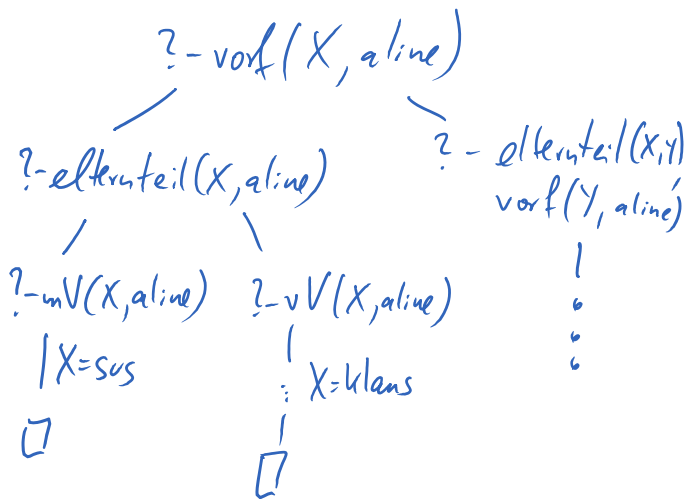 ?-vorf(X, aline)
?-elternteil(X,aline)
?-elternteil(X,Y),
vorf(Y, aline)
?-mV(X,aline)
?-vV(X,aline)
X=sus
X=klaus